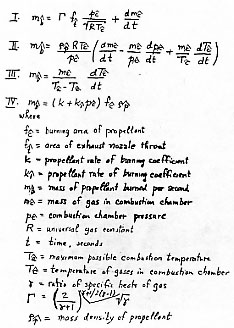 I. ṁp̂ = Γ ft pĉ/√RTĉ + dmĉ/dt
II. ṁp̂ = ρp̂ RTĉ/pĉ (dmĉ/dt - mĉ/pĉ dpĉ/dt + mĉ/Tĉ dTĉ/dt)
III. ṁp̂ = mĉ/(Tê - Tĉ) dTĉ/dt
IV. ṁp̂ = (k + kp̂pĉ) fĉ ρp̂
where
fĉ = burning area of propellant
ft = area of exhaust nozzle throat
k = propellant rate of burning coefficient
kp̂ = propellant rate of burning coefficient
ṁp̂ = mass of propellant burned per second
mĉ = mass of gas in combustion chamber
pĉ = combustion chamber pressure
R = universal gas constant
t = time, seconds
Tê = maximum possible combustion temperature
Tĉ = temperature of gases in combustion chamber
γ = ratio of specific heats of gas
Γ = (2/(γ+1))^(γ+1)/2(γ-1) √γ
ρp̂ = mass density of propellant